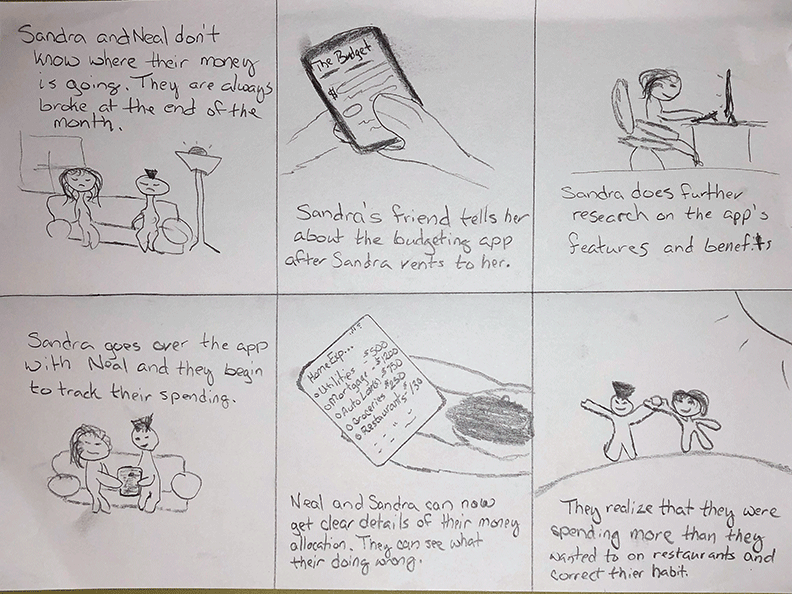 Sandra and Neal don't
know where their money
is going. They are always
broke at the end of the
month.
The Budget
$
Sandra's friend tells her
about the budgeting app
after Sandra vents to her.
Sandra does further
research on the app's
features and benefits
Sandra goes over the app
with Neal and they begin
to track their spending.
Home Exp...
Utilities - $500
Mortgage - $1200
Auto Loan
Groceries
Restaurants
Neal and Sandra can now
get clear details of their money
allocation. They can see what
their doing wrong.
They realize that they were
spending more than they
wanted to on restaurants and
correct thier habit.